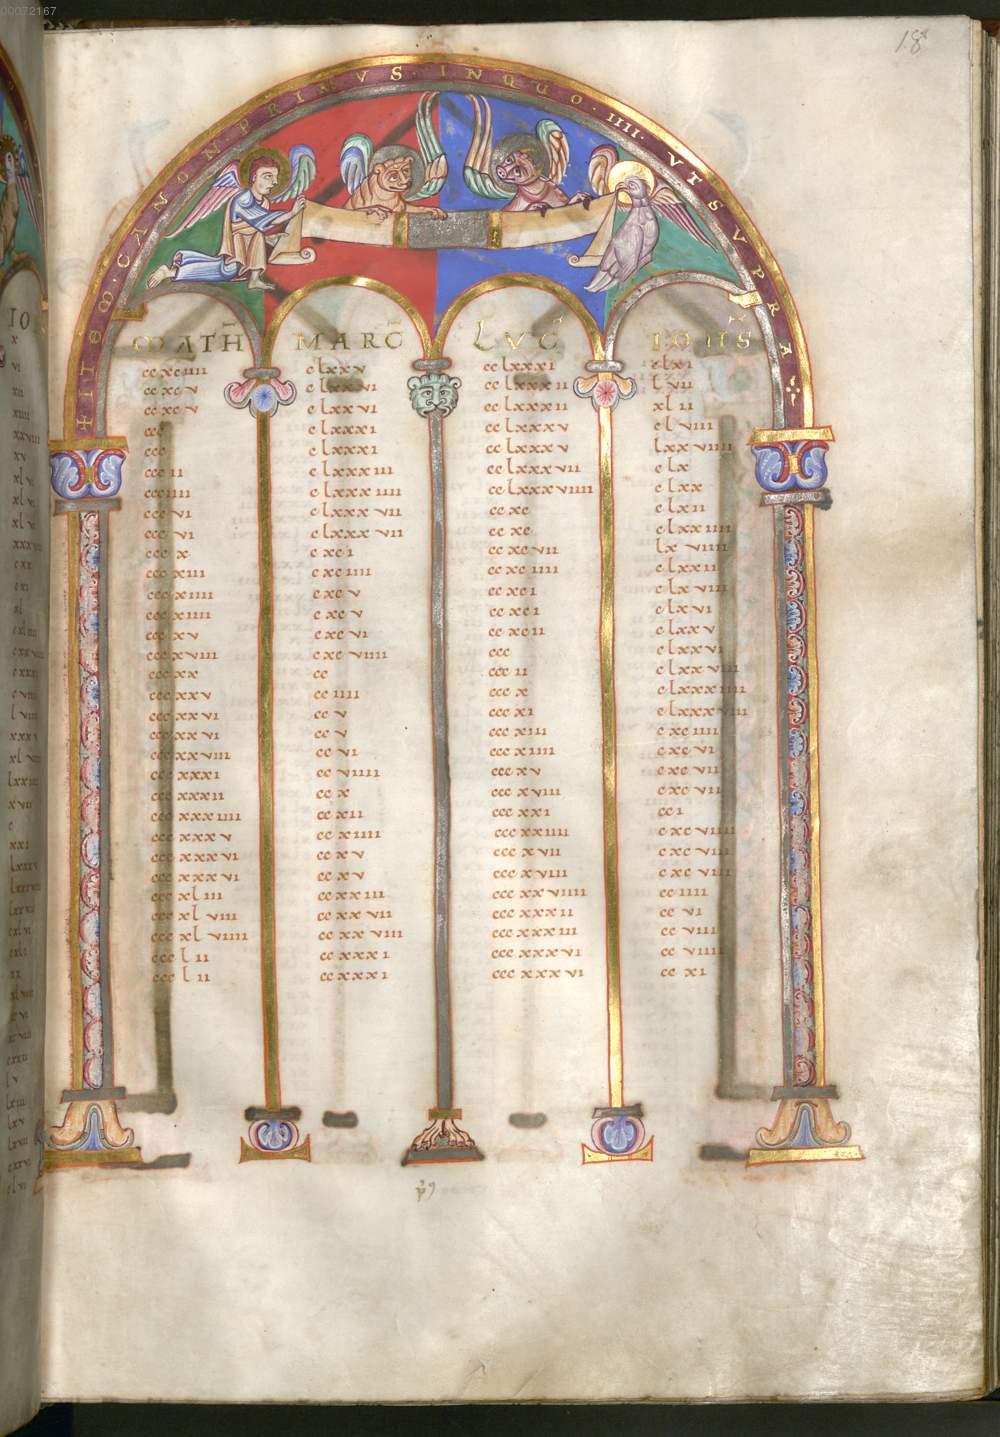 00072167
18
+ ITEM · CANON PRIMVS · IN QUO · IIII · VT SVPRA
MATH MARC LVC IOHS
cc xc iiii c lxx v cc lxxx i c lx i
cc xc v c lxx vi cc lxxx ii l vii
cc xc v c lxx vi cc lxxx ii xl ii
ccc c lxxx i cc lxxx v c l viii
ccc c lxxx i cc lxxx v lxx viiii
ccc ii c lxxx iii cc lxxx vii c lx
ccc iiii c lxxx iiii cc lxxx viiii c lxx
ccc vi c lxxx vii cc xc c lx ii
ccc vi c lxxx vii cc xc c lxx iiii
ccc x c xc i cc xc vii lx viiii
ccc xiii c xc iiii cc xc iiii c lxx ii
ccc xiiii c xc v cc xc i c lx viii
ccc xiiii c xc v cc xc i c lx vi
ccc xv c xc vi cc xc ii c lxx v
ccc xviii c xc viiii ccc c lxx vi
ccc xx cc ccc ii c lxx viii
ccc xx v cc iiii ccc x c lxxx iiii
ccc xx vi cc v ccc xi c lxxx viii
ccc xx vi cc v ccc xiii c xc iiii
ccc xx viii cc vi ccc xiiii c xc vi
ccc xxx i cc viiii ccc xv c xc vii
ccc xxx ii cc x ccc xviii c xc vii
ccc xxx iiii cc xii ccc xxi cc i
ccc xxx v cc xiiii ccc xxiiii c xc viiii
ccc xxx vi cc xv ccc xvii c xc viii
ccc xxx vi cc xv ccc xviii c xc viiii
ccc xl iii cc xx iii ccc xx viiii cc iiii
ccc xl viii cc xx vii ccc xxx ii cc vi
ccc xl viiii cc xx viii ccc xxx iii cc viii
ccc l ii cc xxx i ccc xxx vi cc viiii
ccc l ii cc xxx i ccc xxx vi cc xi